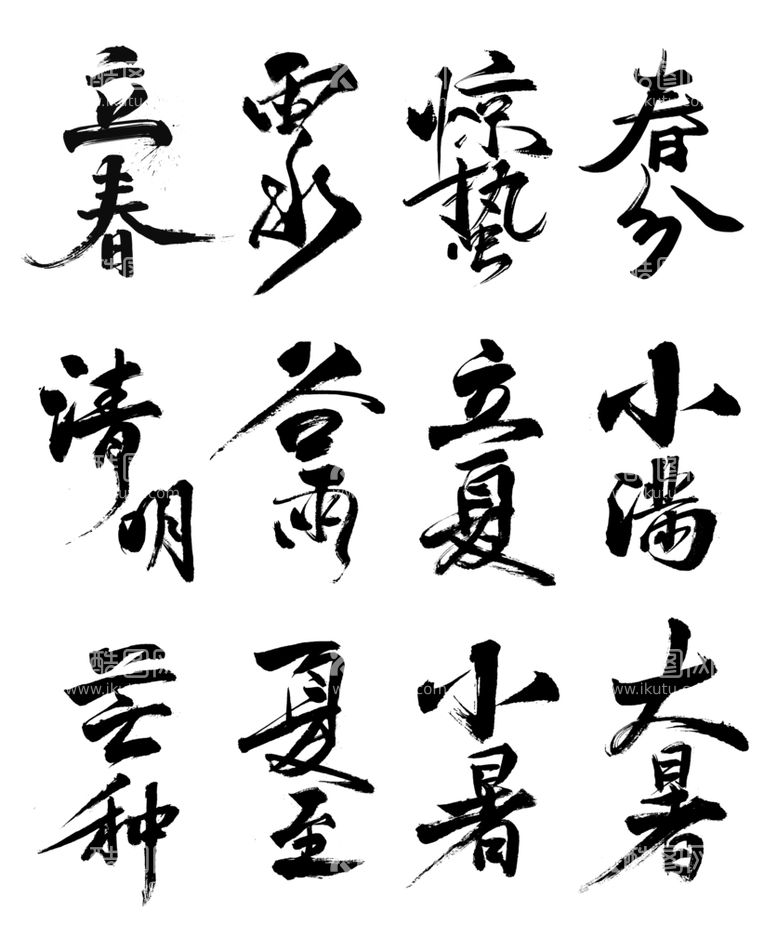 立春
雨水
惊蛰
春分
清明
谷雨
立夏
小满
芒种
夏至
小暑
大暑